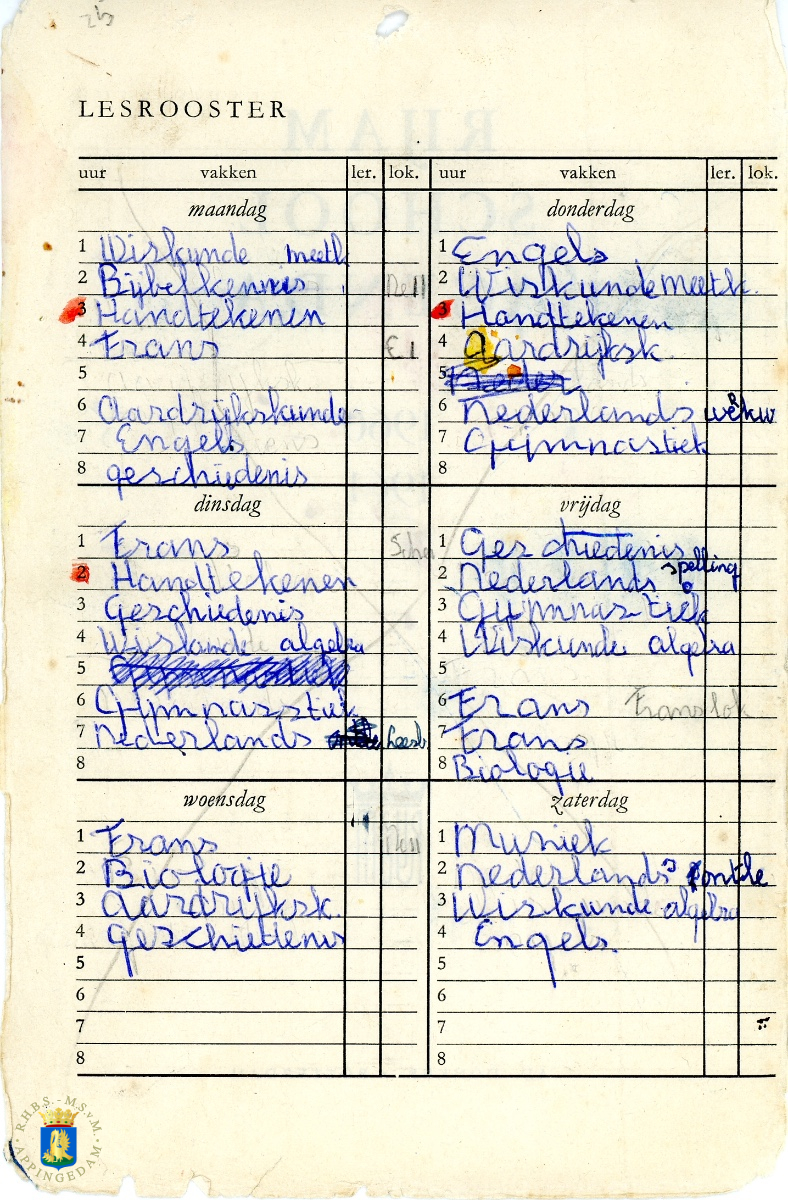 LESROOSTER
uur vakken ler. lok.
maandag
1 Wiskunde meetk
2 Bijbelkennis
3 Handtekenen
4 Frans E1
5
6 Aardrijkskunde
7 Engels
8 geschiedenis
dinsdag
1 Frans
2 Handtekenen
3 Geschiedenis
4 Wiskunde algebra
5
6 Gijmnasstiek
7 Nederlands Leesb
8
woensdag
1 Frans
2 Biologie
3 Aardrijksk.
4 geschiedenis
5
6
7
8
uur vakken ler. lok.
donderdag
1 Engels
2 Wiskunde meetk.
3 Handtekenen
4 Aardrijksk
5 Neder
6 Nederlands werkw
7 Gijmnastiek
8
vrijdag
1 Geschiedenis
2 Nederlands spelling
3 Gijmnastiek
4 Wiskunde algebra
5
6 Frans Franslok
7 Frans
8 Biologie
zaterdag
1 Muziek
2 Nederlands
3 Wiskunde algebra
4 Engels.
5
6
7
8
R.H.B.S. - M.S.v.M.
APPINGEDAM